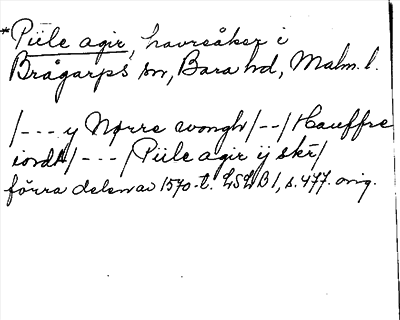 *Piile agir, havreåker i
Brågarps sn, Bara hd, Malm. l.
/--- y Nørre wongh/--/Hauffre
iordt/---/Piile agir ij skr/
förra delen av 1570-t. LSLB1, s. 477. orig.